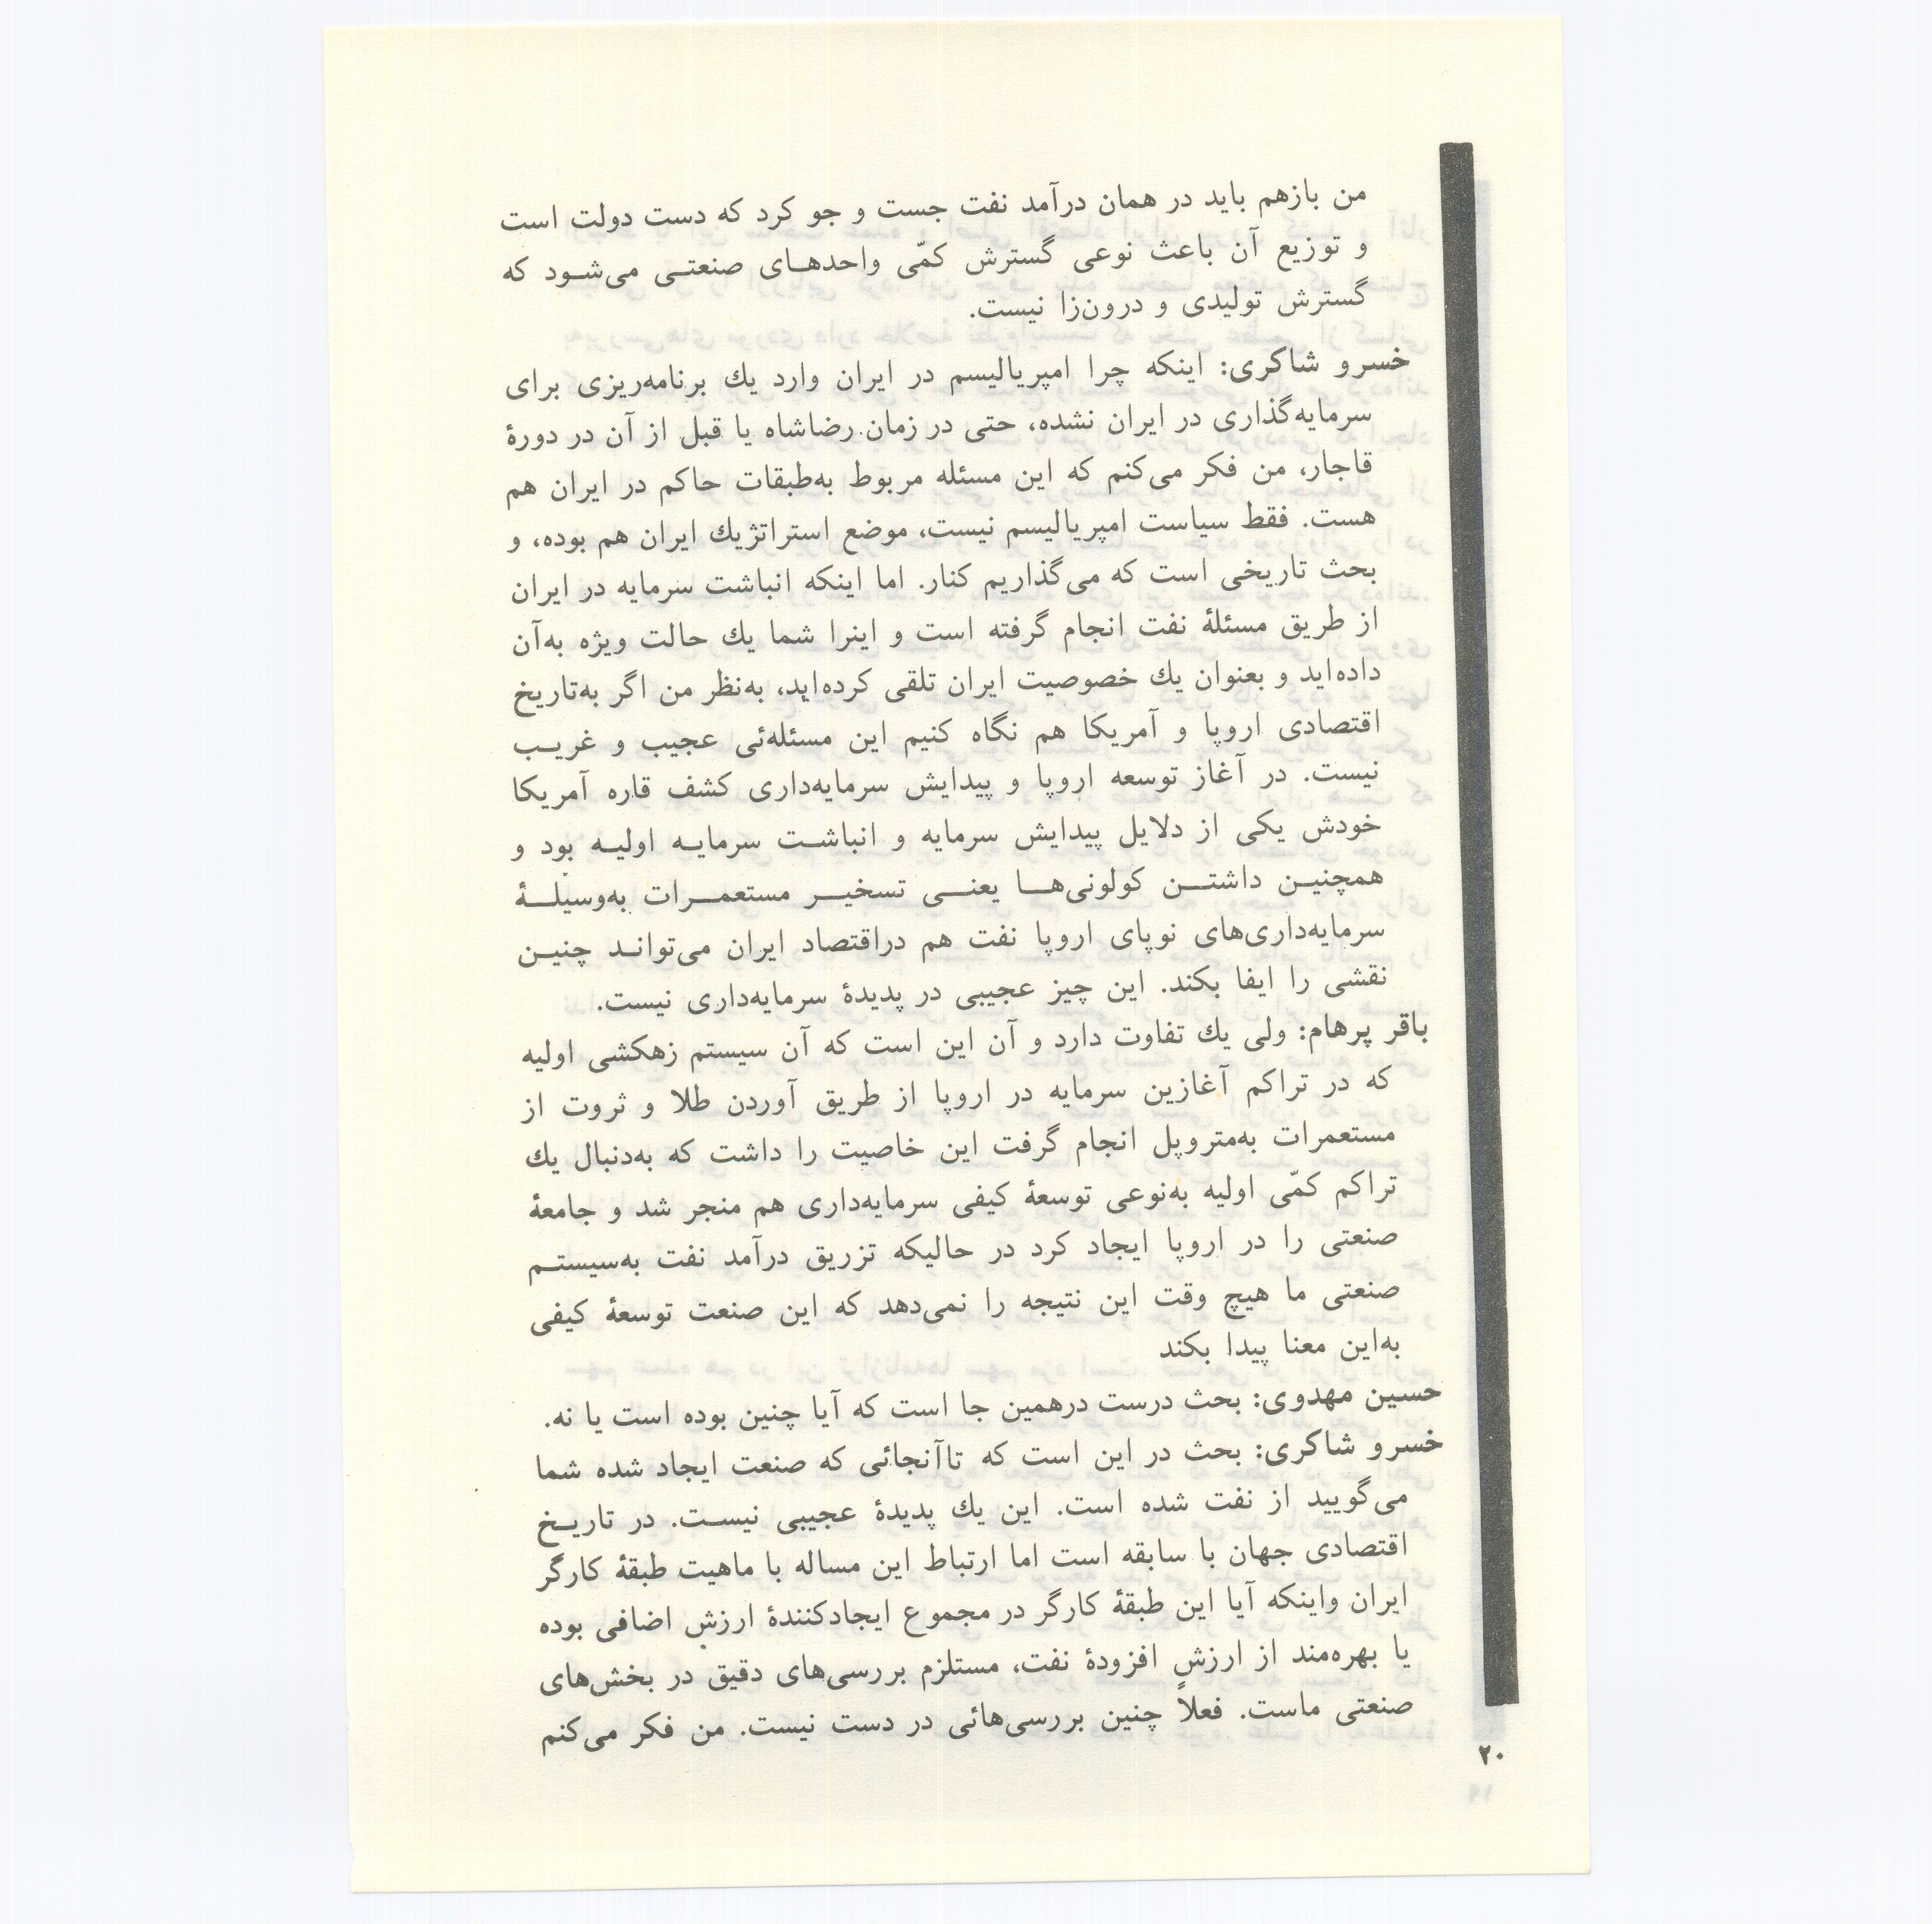 من بازهم باید در همان درآمد نفت جست و جو کرد که دست دولت است
و توزیع آن باعث نوعی گسترش کمّی واحدهای صنعتی می‌شود که
گسترش تولیدی و درون‌زا نیست.
خسرو شاکری: اینکه چرا امپریالیسم در ایران وارد یك برنامه‌ریزی برای
سرمایه‌گذاری در ایران نشده، حتی در زمان رضاشاه یا قبل از آن در دورهٔ
قاجار، من فکر می‌کنم که این مسئله مربوط به‌طبقات حاکم در ایران هم
هست. فقط سیاست امپریالیسم نیست، موضع استراتژیك ایران هم بوده، و
بحث تاریخی است که می‌گذاریم کنار. اما اینکه انباشت سرمایه در ایران
از طریق مسئلهٔ نفت انجام گرفته است و اینرا شما یك حالت ویژه به‌آن
داده‌اید و بعنوان یك خصوصیت ایران تلقی کرده‌اید، به‌نظر من اگر به‌تاریخ
اقتصادی اروپا و آمریکا هم نگاه کنیم این مسئله‌ئی عجیب و غریب
نیست. در آغاز توسعه اروپا و پیدایش سرمایه‌داری کشف قاره آمریکا
خودش یکی از دلایل پیدایش سرمایه و انباشت سرمایه اولیه بود و
همچنین داشتن کولونی‌ها یعنی تسخیر مستعمرات به‌وسیلهٔ
سرمایه‌داری‌های نوپای اروپا نفت هم دراقتصاد ایران می‌تواند چنین
نقشی را ایفا بکند. این چیز عجیبی در پدیدهٔ سرمایه‌داری نیست.
باقر پرهام: ولی یك تفاوت دارد و آن این است که آن سیستم زهکشی اولیه
که در تراکم آغازین سرمایه در اروپا از طریق آوردن طلا و ثروت از
مستعمرات به‌متروپل انجام گرفت این خاصیت را داشت که به‌دنبال یك
تراکم کمّی اولیه به‌نوعی توسعهٔ کیفی سرمایه‌داری هم منجر شد و جامعهٔ
صنعتی را در اروپا ایجاد کرد در حالیکه تزریق درآمد نفت به‌سیستم
صنعتی ما هیچ وقت این نتیجه را نمی‌دهد که این صنعت توسعهٔ کیفی
به‌این معنا پیدا بکند
حسین مهدوی: بحث درست درهمین جا است که آیا چنین بوده است یا نه.
خسرو شاکری: بحث در این است که تاآنجائی که صنعت ایجاد شده شما
می‌گویید از نفت شده است. این یك پدیدهٔ عجیبی نیست. در تاریخ
اقتصادی جهان با سابقه است اما ارتباط این مساله با ماهیت طبقهٔ کارگر
ایران واینکه آیا این طبقهٔ کارگر در مجموع ایجادکنندهٔ ارزشِ اضافی بوده
یا بهره‌مند از ارزشِ افزودهٔ نفت، مستلزم بررسی‌های دقیق در بخش‌های
صنعتی ماست. فعلاً چنین بررسی‌هائی در دست نیست. من فکر می‌کنم
۲۰